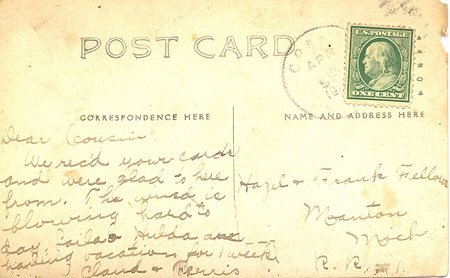 POST CARD
U.S. POSTAGE
ONE CENT
CORRESPONDENCE HERE
NAME AND ADDRESS HERE
Dear Cousin
We rec'd your cards
and were glad to here
from. The wind is
blowing hard to
day. Hulda are
having vacation for 1 week
Claud & Ferris
Hazel & Frank Fellows
Manton
Mich
R. R.